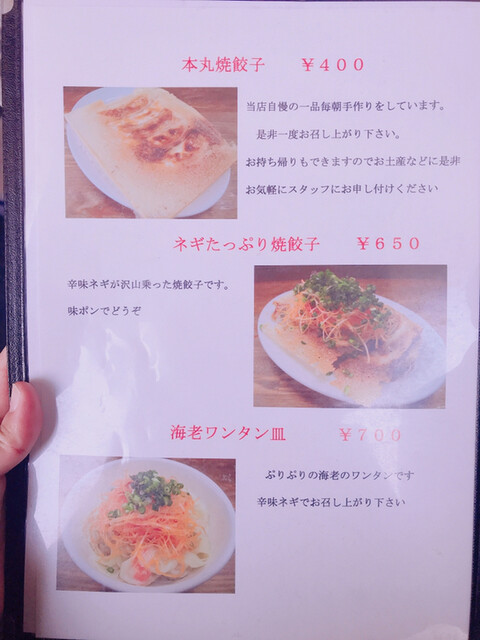 本丸焼餃子　￥４００
当店自慢の一品毎朝手作りをしています。
是非一度お召し上がり下さい。
お持ち帰りもできますのでお土産などに是非
お気軽にスタッフにお申し付けください
ネギたっぷり焼餃子　￥６５０
辛味ネギが沢山乗った焼餃子です。
味ポンでどうぞ
海老ワンタン皿　￥７００
ぷりぷりの海老のワンタンです
辛味ネギでお召し上がり下さい